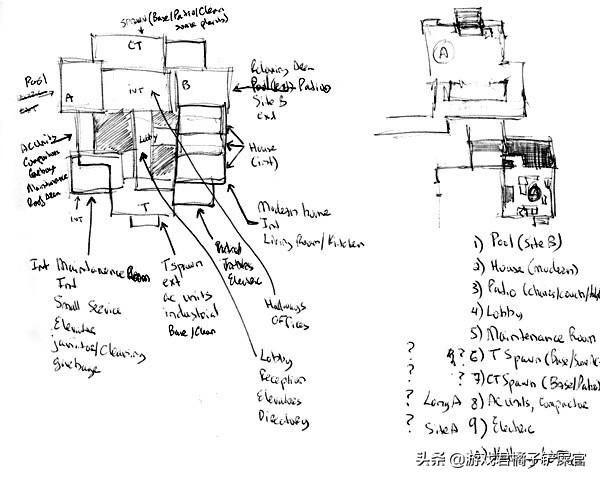 Spawn (Base/Patio/Clean
some plants)
CT
Pool
A
INT
B
Patio
Site B
Ext
AC Units
Lobby
House
(int)
INT
T
Modern home
Int
Living Room/Kitchen
Int Maintenance Room
Int
Small Service
Elevator
janitor/Cleaning
garbage
T spawn
ext
ac units
industrial
Base/Clean
Electric
Hallways
Offices
Lobby
Reception
Elevators
Directory
A
A
1) Pool (Site B)
2) House (modern)
3) Patio (chairs/couch/
4) Lobby
5) Maintenance Room
? ?? 6) T Spawn (Base/
? ? 7) CT Spawn (Base/Patio
? Long A 8) AC Units, Compactor
? Site A 9) Electric
头条 @游戏君橘子铲屎富